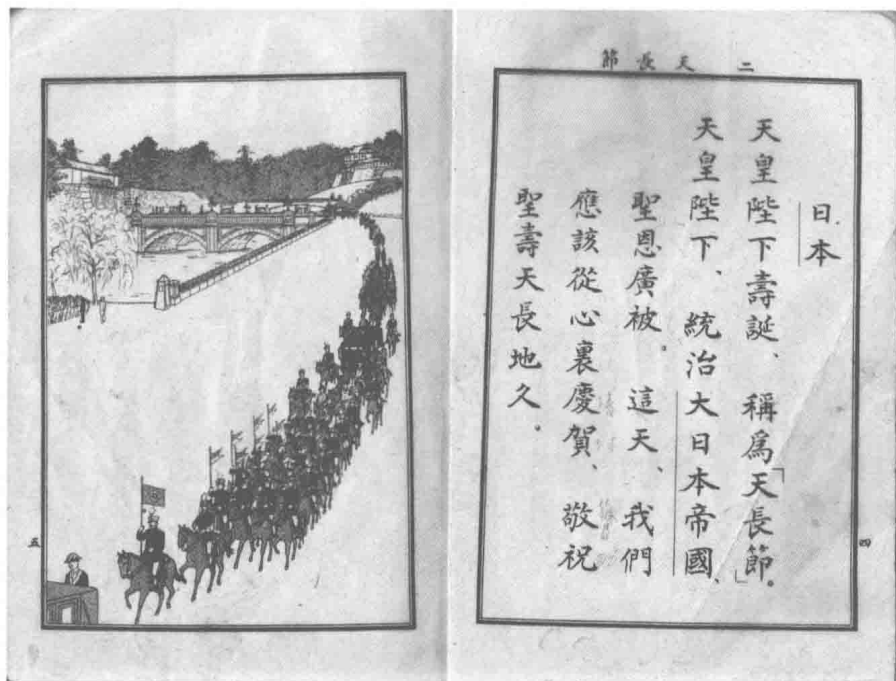 二 天長節
日本
天皇陛下壽誕、稱爲「天長節」。
天皇陛下、統治大日本帝國、
聖恩廣被。這天、我們
應該從心裏慶賀、敬祝
聖壽天長地久。
四
五